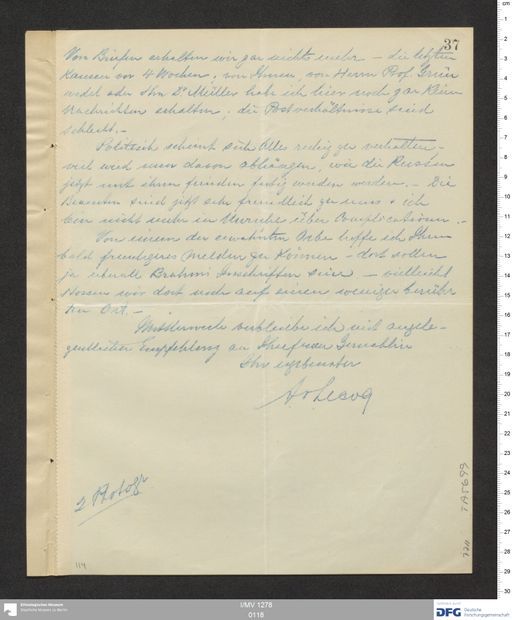 37
Von Briefen erhalten wir gar nichts mehr – die letzten
kamen vor 4 Wochen, von Ihnen, von Herrn Prof. Grün
wedel oder Hrn Dr Müller habe ich hier noch gar keine
Nachrichten erhalten, die Postverhältnisse sind
schlecht. –
Politisch scheint sich Alles ruhig zu verhalten –
viel wird nun davon abhängen, wie die Russen
jetzt mit ihren feinden fertig werden werden. – Die
Beamten sind jetzt sehr freundlich zu uns & ich
bin nicht mehr in Unruhe über Complicationen. –
Von einem der erwähnten Orte hoffe ich Ihnen
bald freudigeres melden zu können – dort sollen
ja überall Brahmi Inschriften sein – vielleicht
stossen wir dort noch auf einen weniger berühr
ten Ort. –
Mittlerweile verbleibe ich mit angele-
gentlicher Empfehlung an Ihre Frau Gemahlin
Ihr ergebenster
AvLecoq
2 Photogr
114
TA 5699
I/MV 1278
0116
Ethnologisches Museum
Staatliche Museen zu Berlin
DFG Deutsche
Forschungsgemeinschaft
cm
1
2
3
4
5
6
7
8
9
10
11
12
13
14
15
16
17
18
19
20
21
22
23
24
25
26
27
28
29
30